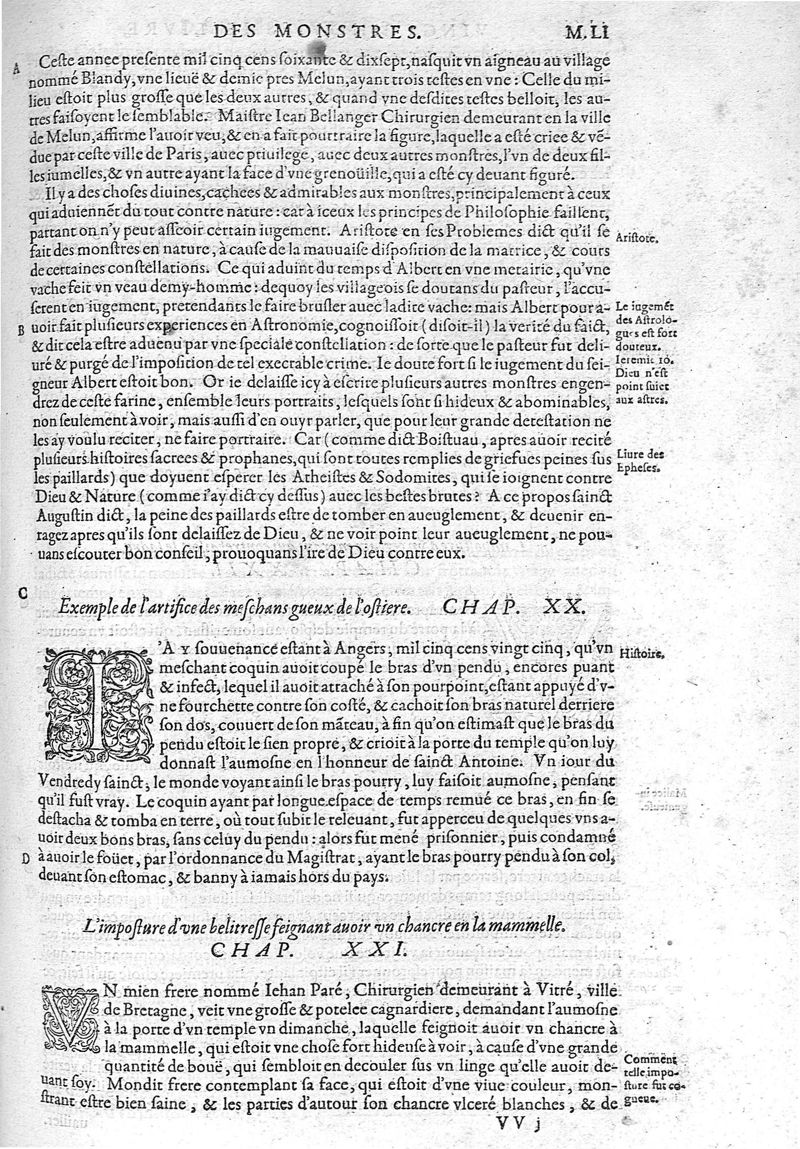 DES MONSTRES. M.LI
A
Ceſte annee preſente mil cinq cens ſoixante & dixſept, naſquit vn aigneau au village
nommé Blandy, vne lieuë & demie pres Melun, ayant trois teſtes en vne: Celle du mi-
lieu eſtoit plus groſſe que les deux autres, & quand vne deſdites teſtes belloit, les au-
tres faiſoyent le ſemblable. Maiſtre Iean Bellanger Chirurgien demeurant en la ville
de Melun, affirme l'auoir veu, & en a fait pourtraire la figure, laquelle a eſté criee & vē-
due par ceſte ville de Paris, auec priuilege, auec deux autres monſtres, l'vn de deux fil-
les iumelles, & vn autre ayant la face d'vne grenoüille, qui a eſté cy deuant figuré.
Il y a des choſes diuines, cachées & admirables aux monſtres, principalement à ceux
qui aduiennēt du tout contre nature: car à iceux les principes de Philoſophie faillent,
partant on n'y peut aſſeoir certain iugement. Ariſtote en ſes Problemes dict qu'il ſe
fait des monſtres en nature, à cauſe de la mauuaiſe diſpoſition de la matrice, & cours
de certaines conſtellations. Ce qui aduint du temps d'Albert en vne metairie, qu'vne
vache feit vn veau demy-homme: dequoy les villageois ſe doutans du paſteur, l'accu-
ſerent en iugement, pretendants le faire bruſler auec ladite vache: mais Albert pour a-
B
uoir fait pluſieurs experiences en Aſtronomie, cognoiſſoit (diſoit-il) la verité du faict,
& dit cela eſtre aduenu par vne ſpeciale conſtellation: de ſorte que le paſteur fut deli-
uré & purgé de l'impoſition de tel execrable crime. Ie doute fort ſi le iugement du ſei-
gneur Albert eſtoit bon. Or ie delaiſſe icy à eſcrire pluſieurs autres monſtres engen-
drez de ceſte farine, enſemble leurs portraits, leſquels ſont ſi hideux & abominables,
non ſeulement à voir, mais auſſi d'en ouyr parler, que pour leur grande deteſtation ne
les ay voulu reciter, ne faire portraire. Car (comme dict Boiſtuau, apres auoir recité
pluſieurs hiſtoires ſacrees & prophanes, qui ſont toutes remplies de griefues peines ſus
les paillards) que doyuent eſperer les Atheiſtes & Sodomites, qui ſe ioignent contre
Dieu & Nature (comme i'ay dict cy deſſus) auec les beſtes brutes? A ce propos ſainct
Auguſtin dict, la peine des paillards eſtre de tomber en aueuglement, & deuenir en-
ragez apres qu'ils ſont delaiſſez de Dieu, & ne voir point leur aueuglement, ne pou-
uans eſcouter bon conſeil, prouoquans l'ire de Dieu contre eux.
Ariſtote.
Le iugemēt
des Aſtrolo-
gues eſt fort
douteux.
Ieremie 10.
Dieu n'eſt
point ſuiet
aux aſtres.
Liure des
Epheſes.
C
Exemple de l'artifice des meſchans gueux de l'oſtiere. CHAP. XX.
I'AY ſouuenance eſtant à Angers, mil cinq cens vingt cinq, qu'vn
meſchant coquin auoit coupé le bras d'vn pendu, encores puant
& infect, lequel il auoit attaché à ſon pourpoint, eſtant appuyé d'v-
ne fourchette contre ſon coſté, & cachoit ſon bras naturel derriere
ſon dos, couuert de ſon māteau, à fin qu'on eſtimaſt que le bras du
pendu eſtoit le ſien propre, & crioit à la porte du temple qu'on luy
donnaſt l'aumoſne en l'honneur de ſainct Antoine. Vn iour du
Vendredy ſainct, le monde voyant ainſi le bras pourry, luy faiſoit aumoſne, penſant
qu'il fuſt vray. Le coquin ayant par longue eſpace de temps remué ce bras, en fin ſe
deſtacha & tomba en terre, où tout ſubit le releuant, fut apperceu de quelques vns a-
uoir deux bons bras, ſans celuy du pendu: alors fut mené priſonnier, puis condamné
D
à auoir le foüet, par l'ordonnance du Magiſtrat, ayant le bras pourry pendu à ſon col,
deuant ſon eſtomac, & banny à iamais hors du pays.
Hiſtoire.
L'impoſture d'vne belitreſſe feignant auoir vn chancre en la mammelle.
CHAP. XXI.
VN mien frere nommé Iehan Paré, Chirurgien demeurant à Vitré, ville
de Bretagne, veit vne groſſe & potelee cagnardiere, demandant l'aumoſne
à la porte d'vn temple vn dimanche, laquelle feignoit auoir vn chancre à
la mammelle, qui eſtoit vne choſe fort hideuſe à voir, à cauſe d'vne grande
quantité de bouë, qui ſembloit en decouler ſus vn linge qu'elle auoit de-
uant ſoy. Mondit frere contemplant ſa face, qui eſtoit d'vne viue couleur, mon-
ſtrant eſtre bien ſaine, & les parties d'autour ſon chancre vlceré blanches, & de
Comment
telle impo-
ſture fut co-
gneue.
VV j